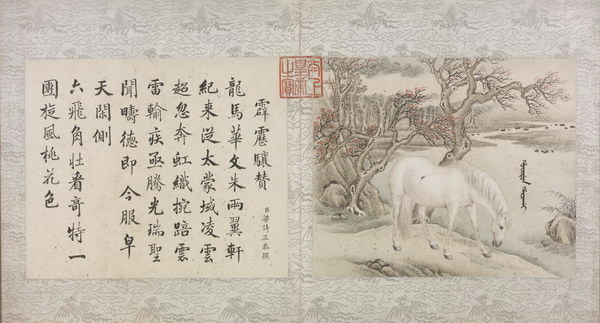 霹靂驤贊
臣梁詩正恭撰
龍馬華文朱兩翼軒
紀來從太蒙域凌雲
超忽奔虹織雲
雷輪疾亟騰光瑞聖
聞疇德即今服皁
天閑側
六飛角壯者奇特一
團旋風桃花色
太上皇帝之寶